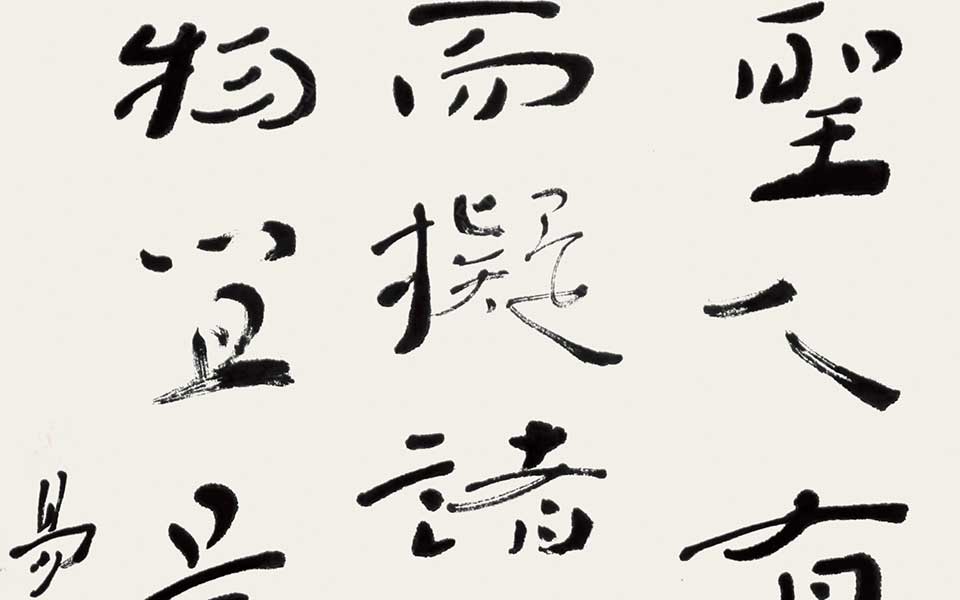 聖人有
而擬諸
物宜是
易